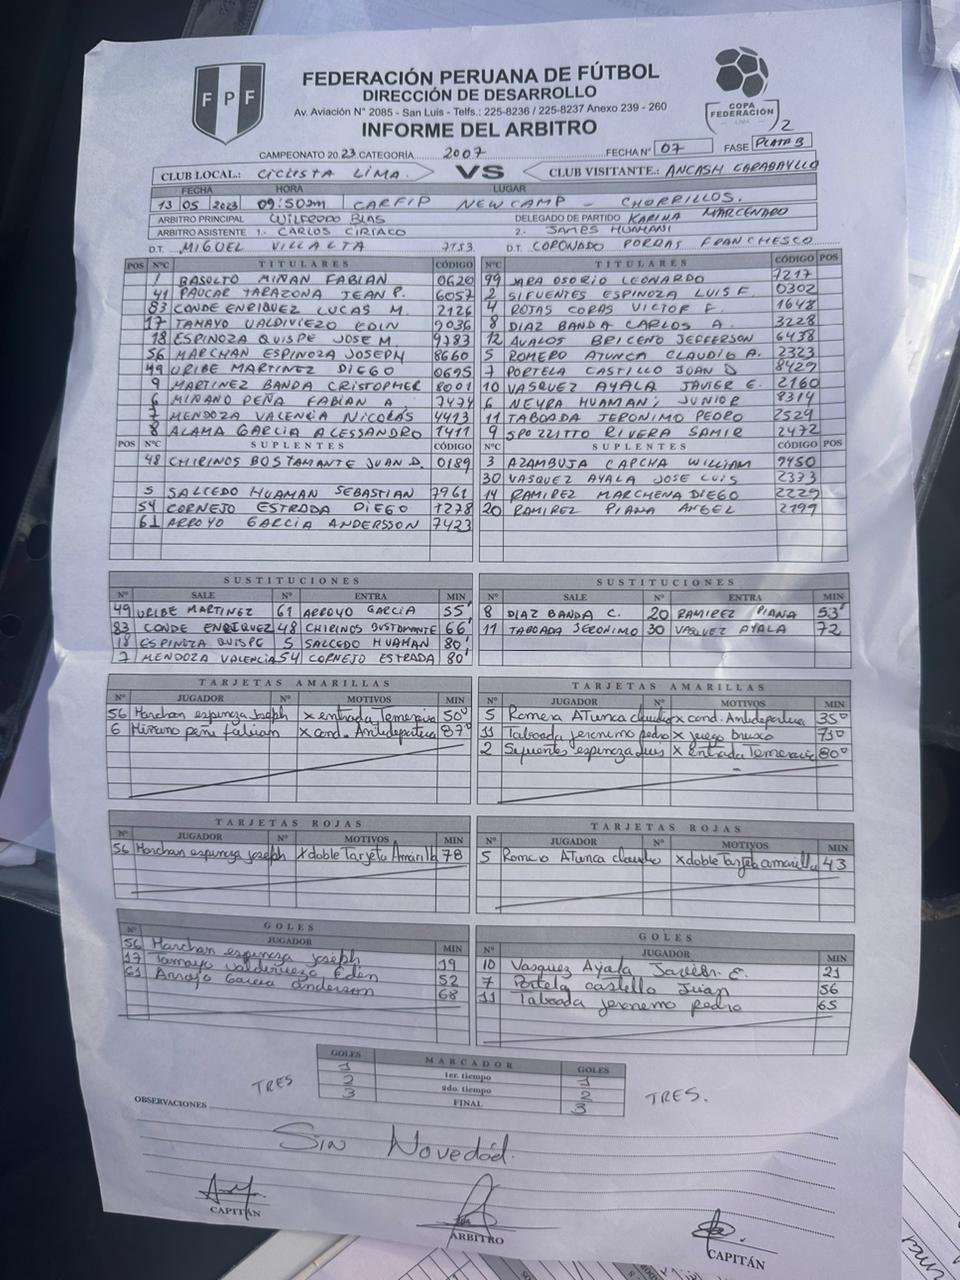 FEDERACIÓN PERUANA DE FÚTBOL
DIRECCIÓN DE DESARROLLO
Av. Aviación Nº 2085 - San Luis - Telfs.: 225-8236 / 225-8237 Anexo 239 - 260
INFORME DEL ARBITRO
FPF
COPA FEDERACIÓN LIMA
CAMPEONATO 2023 CATEGORÍA 2007 FECHA Nº 07 FASE PLATA B
CLUB LOCAL: CICLISTA LIMA. VS CLUB VISITANTE.: ANCASH CARABAYLLO
FECHA HORA LUGAR
13 05 2023 09:50am CAFFIP NEW CAMP - CHORRILLOS.
ARBITRO PRINCIPAL WILFREDO BLAS DELEGADO DE PARTIDO KARINA MARCENARO
ARBITRO ASISTENTE 1.- CARLOS CIRIACO 2.- JAMES HUAMANI
D.T. MIGUEL VILLALTA 7753 D.T. CORONADO PORRAS FRANCHESCO
POS NºC TITULARES CÓDIGO NºC TITULARES CÓDIGO POS
1 BASOLTO MIÑAN FABIAN 0620 99 JARA OSORIO LEONARDO 7217
41 PAUCAR TARAZONA JEAN P. 6057 2 SIFUENTES ESPINOZA LUIS F. 0302
83 CONDE ENRIQUEZ LUCAS M. 2126 4 ROJAS CORAS VICTOR F. 1648
17 TAMAYO VALDIVIEZO EDIN 9036 8 DIAZ BANDA CARLOS A. 3228
18 ESPINOZA QUISPE JOSE M. 9783 12 AVALOS BRICEÑO JEFFERSON 6438
56 MARCHAN ESPINOZA JOSEPH 8660 5 ROMERO ATUNCA CLAUDIO A. 2323
49 URIBE MARTINEZ DIEGO 0695 7 PORTELA CASTILLO JUAN D 8429
9 MARTINEZ BANDA CRISTOPHER 8001 10 VASQUEZ AYALA JAVIER E. 2160
6 MIÑANO PEÑA FABIAN A. 7474 6 NEYRA HUAMANI JUNIOR 8314
7 MENDOZA VALENCIA NICOLAS 4413 11 TABOADA JERONIMO PEDRO 2529
8 ALAMA GARCIA ALESSANDRO 1411 9 SPOZZITTO RIVERA SAMIR 2472
POS NºC SUPLENTES CÓDIGO NºC SUPLENTES CÓDIGO POS
48 CHIRINOS BUSTAMANTE JUAN D. 0189 3 AZAMBUJA CAPCHA WILLIAM 9450
30 VASQUEZ AYALA JOSE LUIS 2373
5 SALCEDO HUAMAN SEBASTIAN 7961 14 RAMIREZ MARCHENA DIEGO 2229
54 CORNEJO ESTRADA DIEGO 1278 20 RAMIREZ PIANA ANGEL 2199
61 ARROYO GARCIA ANDERSSON 7423
SUSTITUCIONES SUSTITUCIONES
Nº SALE Nº ENTRA MIN Nº SALE Nº ENTRA MIN
49 URIBE MARTINEZ 61 ARROYO GARCIA 55' 8 DIAZ BANDA C. 20 RAMIREZ PIANA 53'
83 CONDE ENRIQUEZ 48 CHIRINOS BUSTOMANTE 66' 11 TABOADA JERONIMO 30 VASQUEZ AYALA 72
18 ESPINOZA QUISPE 5 SALCEDO HUAMAN 80'
7 MENDOZA VALENCIA 54 CORNEJO ESTRADA 80'
TARJETAS AMARILLAS TARJETAS AMARILLAS
Nº JUGADOR Nº MOTIVOS MIN Nº JUGADOR Nº MOTIVOS MIN
56 Marchan espinoza Joseph x entrada Temeraria 50° 5 Romero ATunca claudio x cond. Antideportiva 35°
6 Miñano peña fabian x cond. Antideportiva 87° 11 Taboada jeronemo pedro x juego brusco 75°
2 Sifuentes espinoza luis x Entrada Temeraria 80°
TARJETAS ROJAS TARJETAS ROJAS
Nº JUGADOR Nº MOTIVOS MIN Nº JUGADOR Nº MOTIVOS MIN
56 Marchan espinoza joseph x doble Tarjeta Amarilla 78 5 Romero ATunca claudio x doble Tarjeta amarilla 43
GOLES GOLES
Nº JUGADOR MIN Nº JUGADOR MIN
56 Marchan espinoza joseph 19 10 Vasquez Ayala Javier E. 21
17 Tamayo valderviezo Eden 52 7 Portela castillo Juan 56
61 Arroyo Garcia anderson 68 11 Taboada jeronemo pedro 65
GOLES MARCADOR GOLES
1 1er. tiempo 1
2 2do. tiempo 2
TRES 3 FINAL 3 TRES.
OBSERVACIONES
Sin Novedad.
CAPITÁN ARBITRO CAPITÁN